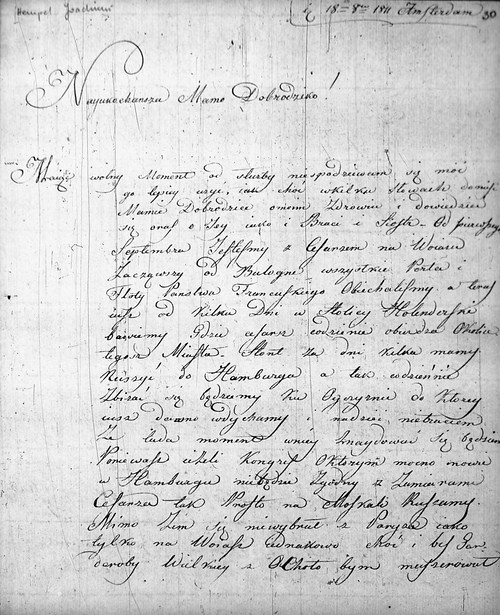 Hempel Joachim
18 8br 1811 Amsterdam 30
Nayukochansza Mamo Dobrodziko!
Maiąc wolny Moment od służby niespodziewam się moc
go lepiey użyć, iak choć wkilku słowach donieść
Mamie Dobrodzice omoim Zdrowiu i dowiedzieć
się oraz o Jey iako i Braci i Siostr. Od pierwszego
Septembra Jestesmy z Cesarzem na Woiażu
Zacząwszy od Bulogne wszystkie Porta i
Floty Państwa Francuskiego Obiechalismy a teraz
iusz od Kilku Dni w Stolicy Holenderskie
bawiemy Gdzie cesarz codzienie obieżdza Okolice
tegosz Miasta. Stont za dni kilka mamy
Ruszyć do Hamburga a tak codziennie
Zbiżać się będziemy Ku Oyczyznie do Ktorey
iusz dawno wdychamy nadziei nietraciem
Ze lada moment wniey znaydować się będziem
Ponieważ ieżeli Kongres Oktorym mocno mowią
w Hamburgu niebędzie Zgodny z Zamiarami
Cesarza tak Prosto na Moskala Ruszamy.
Mimo Zem się niewybrał z Paryża iako
tylko na Woiaż iednakowo choć i bez Gar
deroby Wielkiey z Ochotą bym maszerował